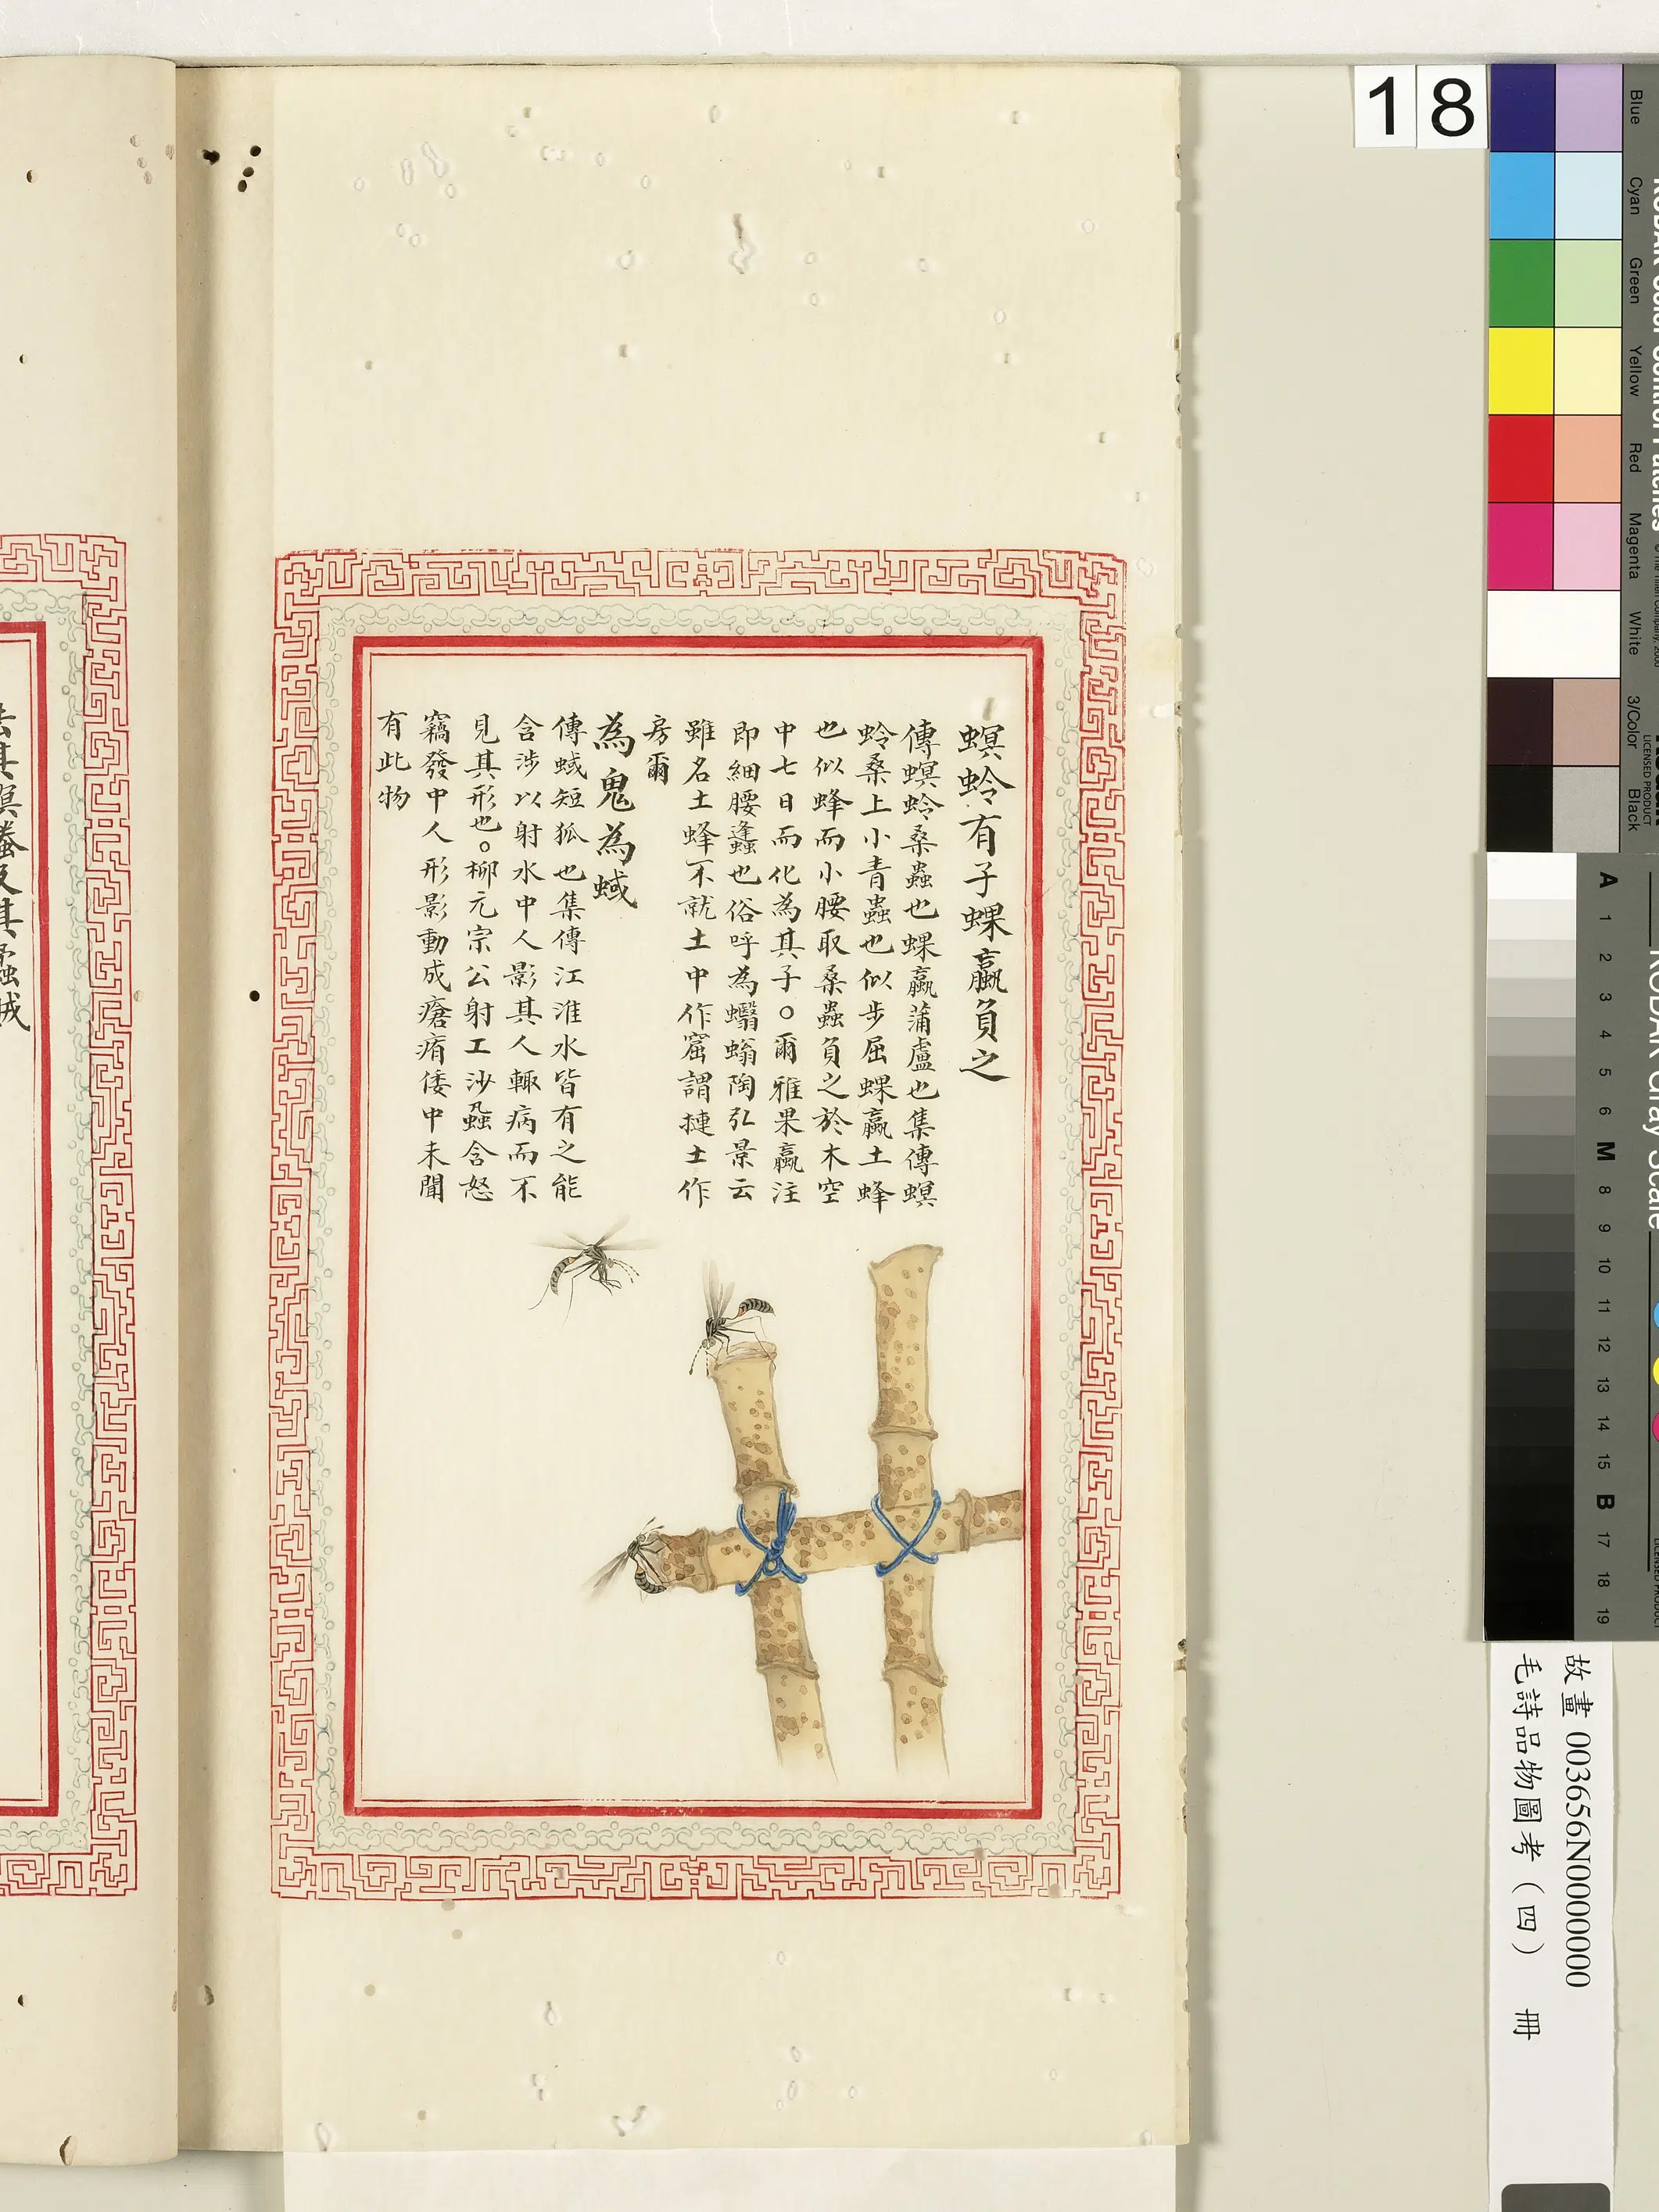 螟蛉有子蜾蠃負之
傳螟蛉桑蟲也蜾蠃蒲盧也集傳螟
蛉桑上小青蟲也似步屈蜾蠃土蜂
也似蜂而小腰取桑蟲負之於木空
中七日而化為其子○爾雅果蠃注
即細腰蠭也俗呼為蠮螉陶弘景云
雖名土蜂不就土中作窟謂摙土作
房爾
為鬼為蜮
傳蜮短狐也集傳江淮水皆有之能
含沙以射水中人影其人輒病而不
見其形也○柳元宗公射工沙蝨含怒
竊發中人形影動成瘡痏倭中未聞
有此物
去其螟螣及其蟊賊
18
Blue
Cyan
Green
Yellow
Red
Magenta
White
3/Color
Black
KODAK Color Control Patches
LICENSED PRODUCT
KODAK Gray Scale
A 1 2 3 4 5 6 M 8 9 10 11 12 13 14 15 B 17 18 19
故畫 003656N000000000
毛詩品物圖考（四） 冊